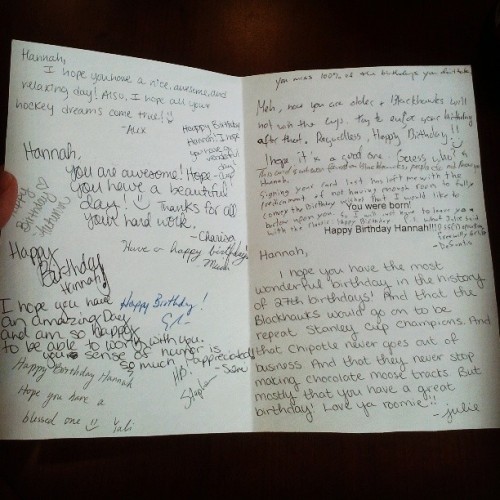 Hannah,
I hope you have a nice, awesome, and
relaxing day! Also, I hope all your
hockey dreams come true!
- Alex
Happy Birthday
Hannah! I hope
you have a
wonderful
day!
Happy
Birthday
Hannah,
You are awesome! Hope
you have a beautiful
day! Thanks for all
your hard work.
- Charissa
Have a happy birthday!
Happy
Birthday
Hannah!
I hope you have
an amazing Day
and am so happy
to be able to work with you.
your sense of humor is
so much appreciated!
Happy Birthday!
HB
Happy Birthday Hannah
Hope you have a
blessed one
You miss 100% of the birthdays you don't take.
Meh, now you are older & Blackhawks will
not win the cup. Try to enjoy your birthday
after that. Regardless, Happy Birthday!!
I hope it is a good one.
Hannah,
signing your card last has left me with the
predicament of not having enough room to fully
convey the Birthday wishes that I would like to
bestow upon you. So I will just have to leave you
with the classic: Happy Birthday
You were born!
Happy Birthday Hannah!!!
Hannah,
I hope you have the most
wonderful birthday in the history
of 27th birthdays! And that the
Blackhawks would go on to be
repeat Stanley Cup champions. And
that Chipotle never goes out of
business. And that they never stop
making chocolate moose tracks. But
mostly that you have a great
birthday! Love ya roomie!!
- Julie